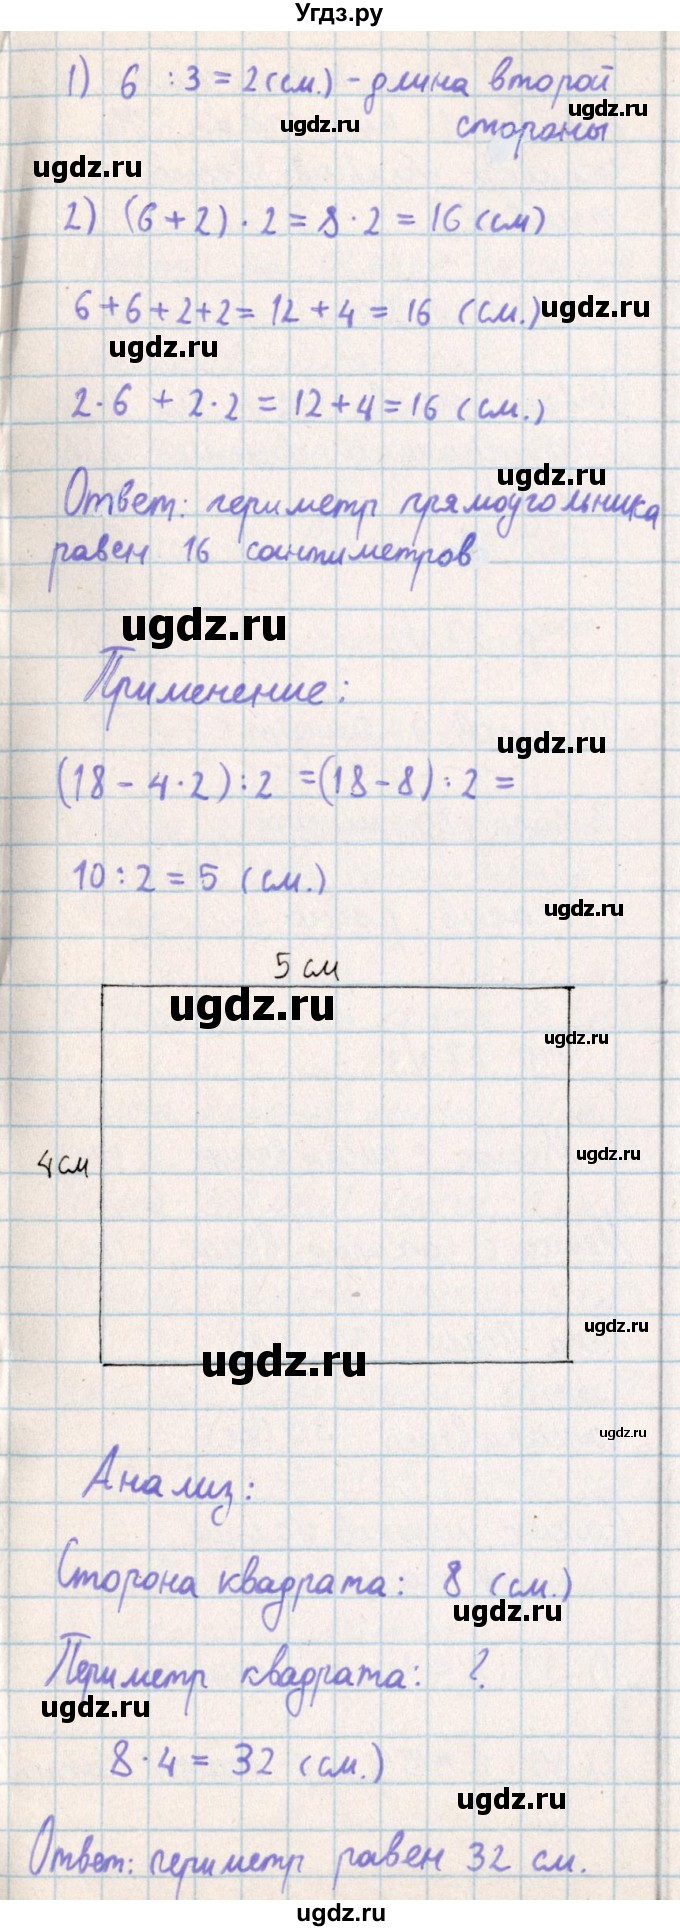 Угдз.ру
1) 6 : 3 = 2 (см.) - длина второй
ugdz.ru
ugdz.ru
стороны
ugdz.ru
2) (6 + 2) · 2 = 8 · 2 = 16 (см)
6 + 6 + 2 + 2 = 12 + 4 = 16 (см.)
ugdz.ru
ugdz.ru
2 · 6 + 2 · 2 = 12 + 4 = 16 (см.)
ugdz.ru
Ответ: периметр прямоугольника
равен 16 сантиметров
ugdz.ru
Применение:
ugdz.ru
(18 - 4 · 2) : 2 = (18 - 8) : 2 =
10 : 2 = 5 (см.)
ugdz.ru
5 см
ugdz.ru
ugdz.ru
4 см
ugdz.ru
ugdz.ru
ugdz.ru
ugdz.ru
Анализ:
Сторона квадрата: 8 (см.)
ugdz.ru
Периметр квадрата: ?
ugdz.ru
8 · 4 = 32 (см.)
ugdz.ru
Ответ: периметр равен 32 см.
ugdz.ru